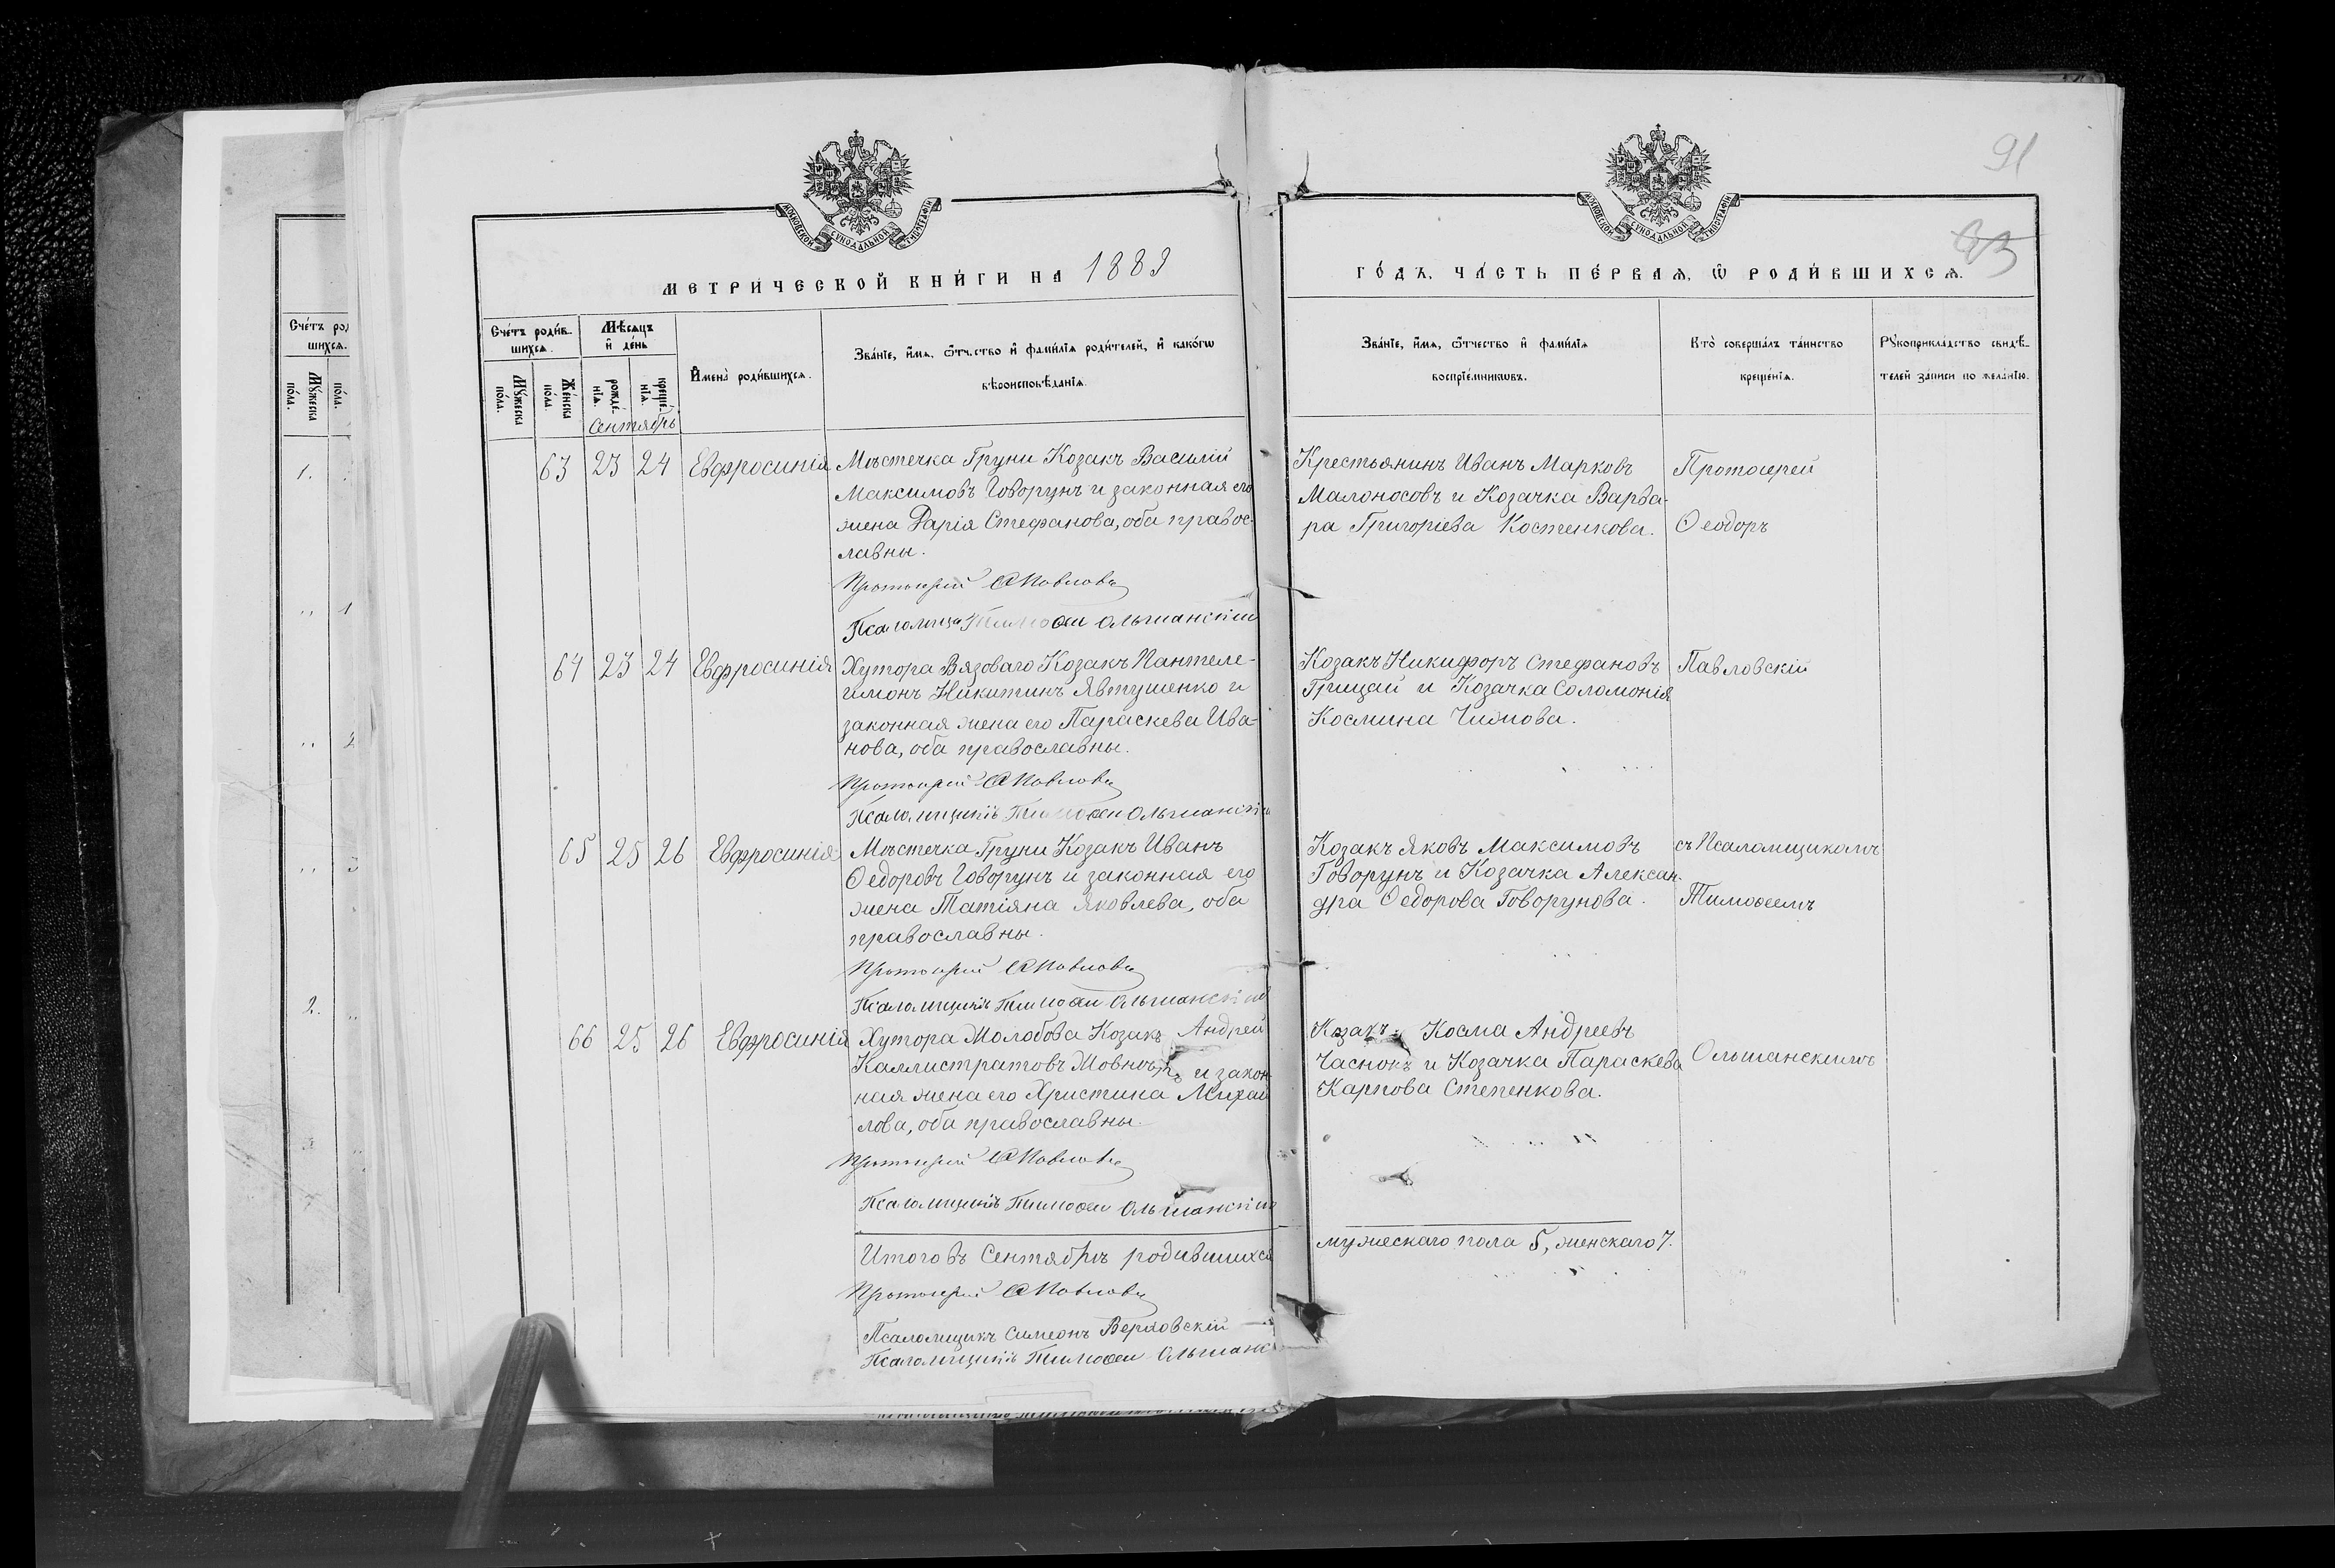 91
83
МОСКОВСКОЙ СУНОДАЛЬНОЙ ТИПОГРАФІИ
МОСКОВСКОЙ СУНОДАЛЬНОЙ ТИПОГРАФІИ
МЕТРИ́ЧЕСКОЙ КНИ́ГИ НА 1889
ГО́ДЪ, ЧА́СТЬ ПЕ́РВАѦ, Ѿ РОДИ́ВШИХСѦ.
Сче́тъ роди́в-
шихсѧ.
Мѣ́сѧцъ
и҆ де́нь
И҆мена̀ роди́вшихсѧ.
Зва́нїе, и҆́мѧ, ѻ҆́тчество и҆ фами́лїѧ роди́телей, и҆ како́гѡ
вѣроисповѣ́данїѧ.
Зва́нїе, и҆́мѧ, ѻ҆́тчество и҆ фами́лїѧ
воспрїе́мникѡвъ.
Кто̀ соверша́лъ та́инство
креще́нїѧ.
Рꙋкоприкла́дство свидѣ́-
телей за́писи по жела́нїю.
Мꙋ́жеска
по́ла.
Же́нска
по́ла.
рожде́-
нїѧ.
креще́-
нїѧ.
Сентябрь
63 23 24 Евфросинія Мѣстечка Груни Козакъ Василій
Максимовъ Говорунъ и законная его
жена Дарія Стефанова, оба правос-
лавны.
Протоіерей Ѳ Павловъ
Псаломщ Тимоѳей Ольшанскій
Крестьянинъ Иванъ Марковъ
Малоносовъ и Козачка Варва-
ра Григоріева Костенкова.
Протоіерей
Ѳеодоръ
64 23 24 Евфросинія Хутора Вязоваго Козакъ Пантеле-
имонъ Никитинъ Явтушенко и
законная жена его Параскева Ива-
нова, оба православны.
Протоіерей Ѳ Павловъ
Псаломщикъ Тимоѳей Ольшанскій
Козакъ Никифоръ Стефановъ
Грицай и Козачка Соломонія
Космина Чижова.
Павловскій
65 25 26 Евфросинія Мѣстечка Груни Козакъ Иванъ
Ѳедоровъ Говорунъ и законная его
жена Татіяна Яковлева, оба
православны.
Протоіерей Ѳ Павловъ
Псаломщикъ Тимоѳей Ольшанскій
Козакъ Яковъ Максимовъ
Говорунъ и Козачка Алексан-
дра Ѳедорова Говорунова.
съ Псаломщикомъ
Тимоѳеемъ
66 25 26 Евфросинія Хутора Молобова Козакъ Андрей
Каллистратовъ и закон-
ная жена его Христина Михай
лова, оба православны.
Протоіерей Ѳ Павловъ
Псаломщикъ Тимоѳей Ольшанскій
Козакъ Косма Андреевъ
Часнокъ и Козачка Параскева
Карпова Степенкова.
Ольшанскимъ
Итого въ Сентябрѣ родившихся
мужескаго пола 5, женскаго 7.
Протоіерей Ѳ Павловъ
Псаломщикъ Симеонъ Верховскій
Псаломщикъ Тимоѳей Ольшанс
Сче́тъ род
шихсѧ.
Мꙋ́жеска
по́ла.
по́ла.
1.
" 1
" 2
" 3
2. "